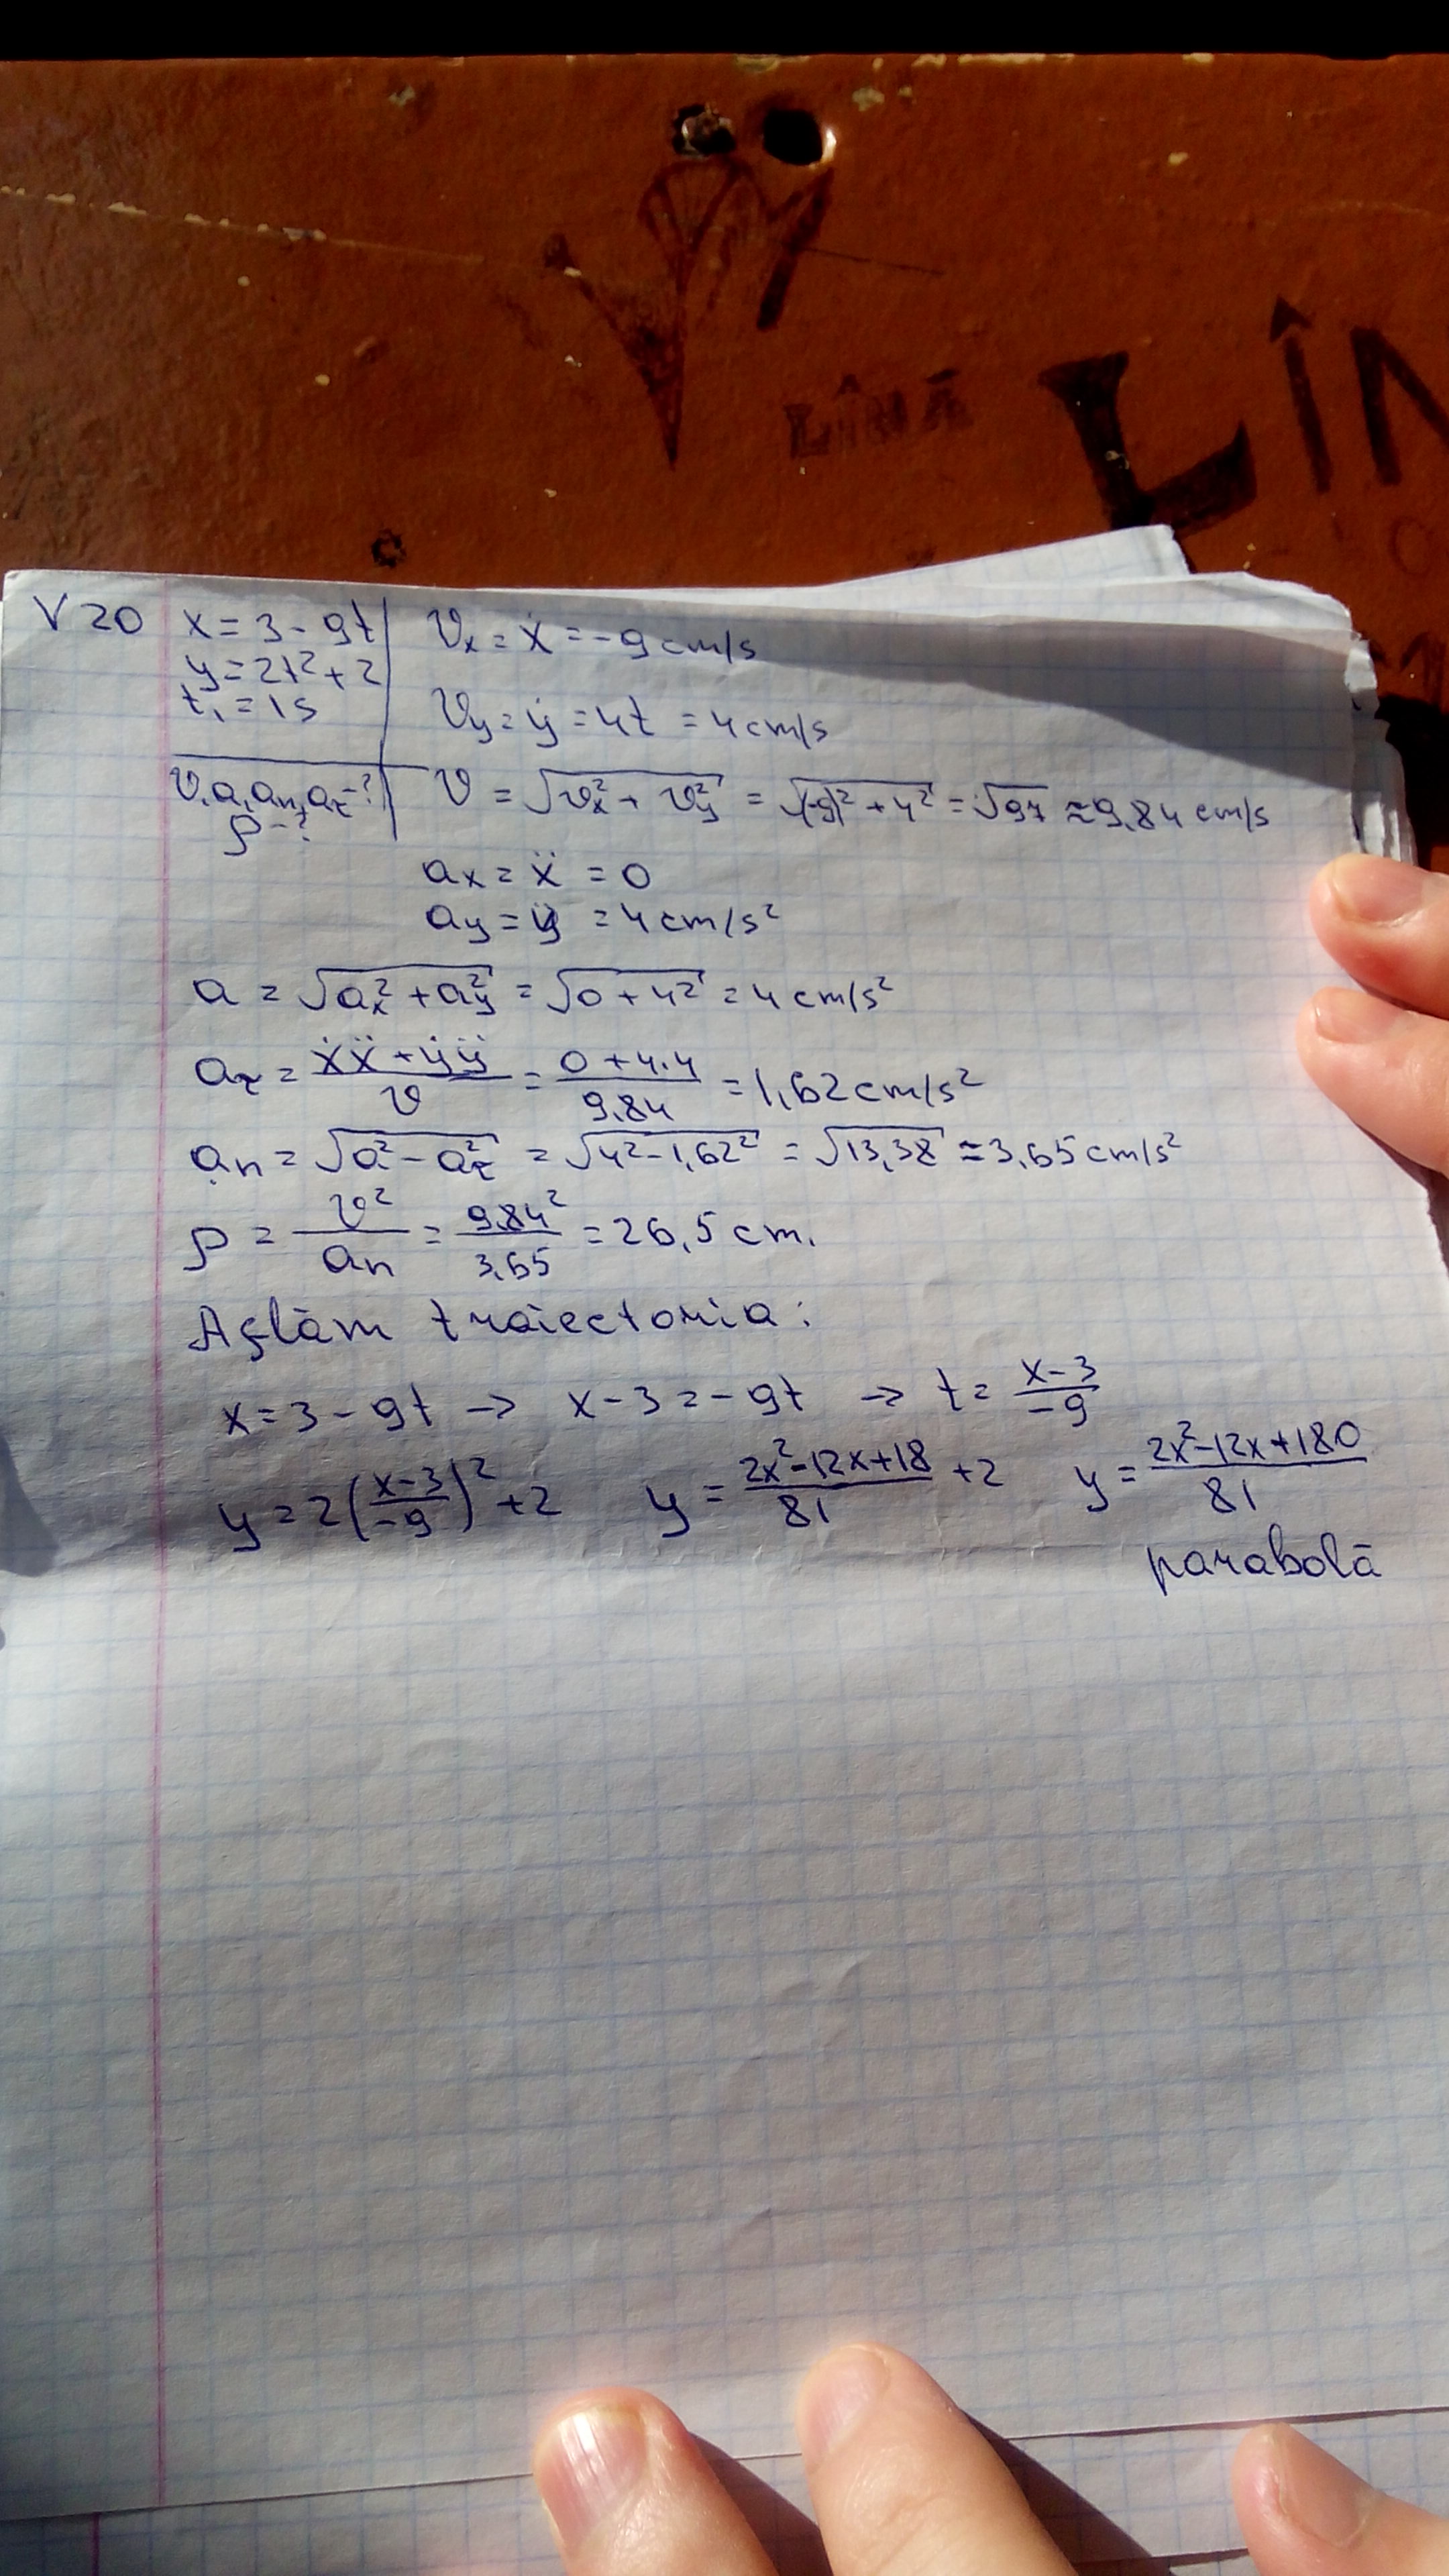 LÎNĂ
LÎN
V 20
x = 3 - 9t
y = 2t² + 2
t₁ = 1s
v, a, aₙ, a_τ - ?
ρ - ?
vₓ = ẋ = -9 cm/s
v_y = ẏ = 4t = 4 cm/s
v = √(vₓ² + v_y²) = √((-9)² + 4²) = √97 ≈ 9,84 cm/s
aₓ = ẍ = 0
a_y = ÿ = 4 cm/s²
a = √(aₓ² + a_y²) = √(0 + 4²) = 4 cm/s²
a_τ = (ẋẍ + ẏÿ)/v = (0 + 4·4)/9,84 = 1,62 cm/s²
aₙ = √(a² - a_τ²) = √(4² - 1,62²) = √13,38 ≈ 3,65 cm/s²
ρ = v²/aₙ = 9,84²/3,65 = 26,5 cm.
Aflăm traiectoria:
x = 3 - 9t → x - 3 = -9t → t = (x-3)/(-9)
y = 2((x-3)/(-9))² + 2 y = (2x²-12x+18)/81 + 2 y = (2x²-12x+180)/81
parabolă